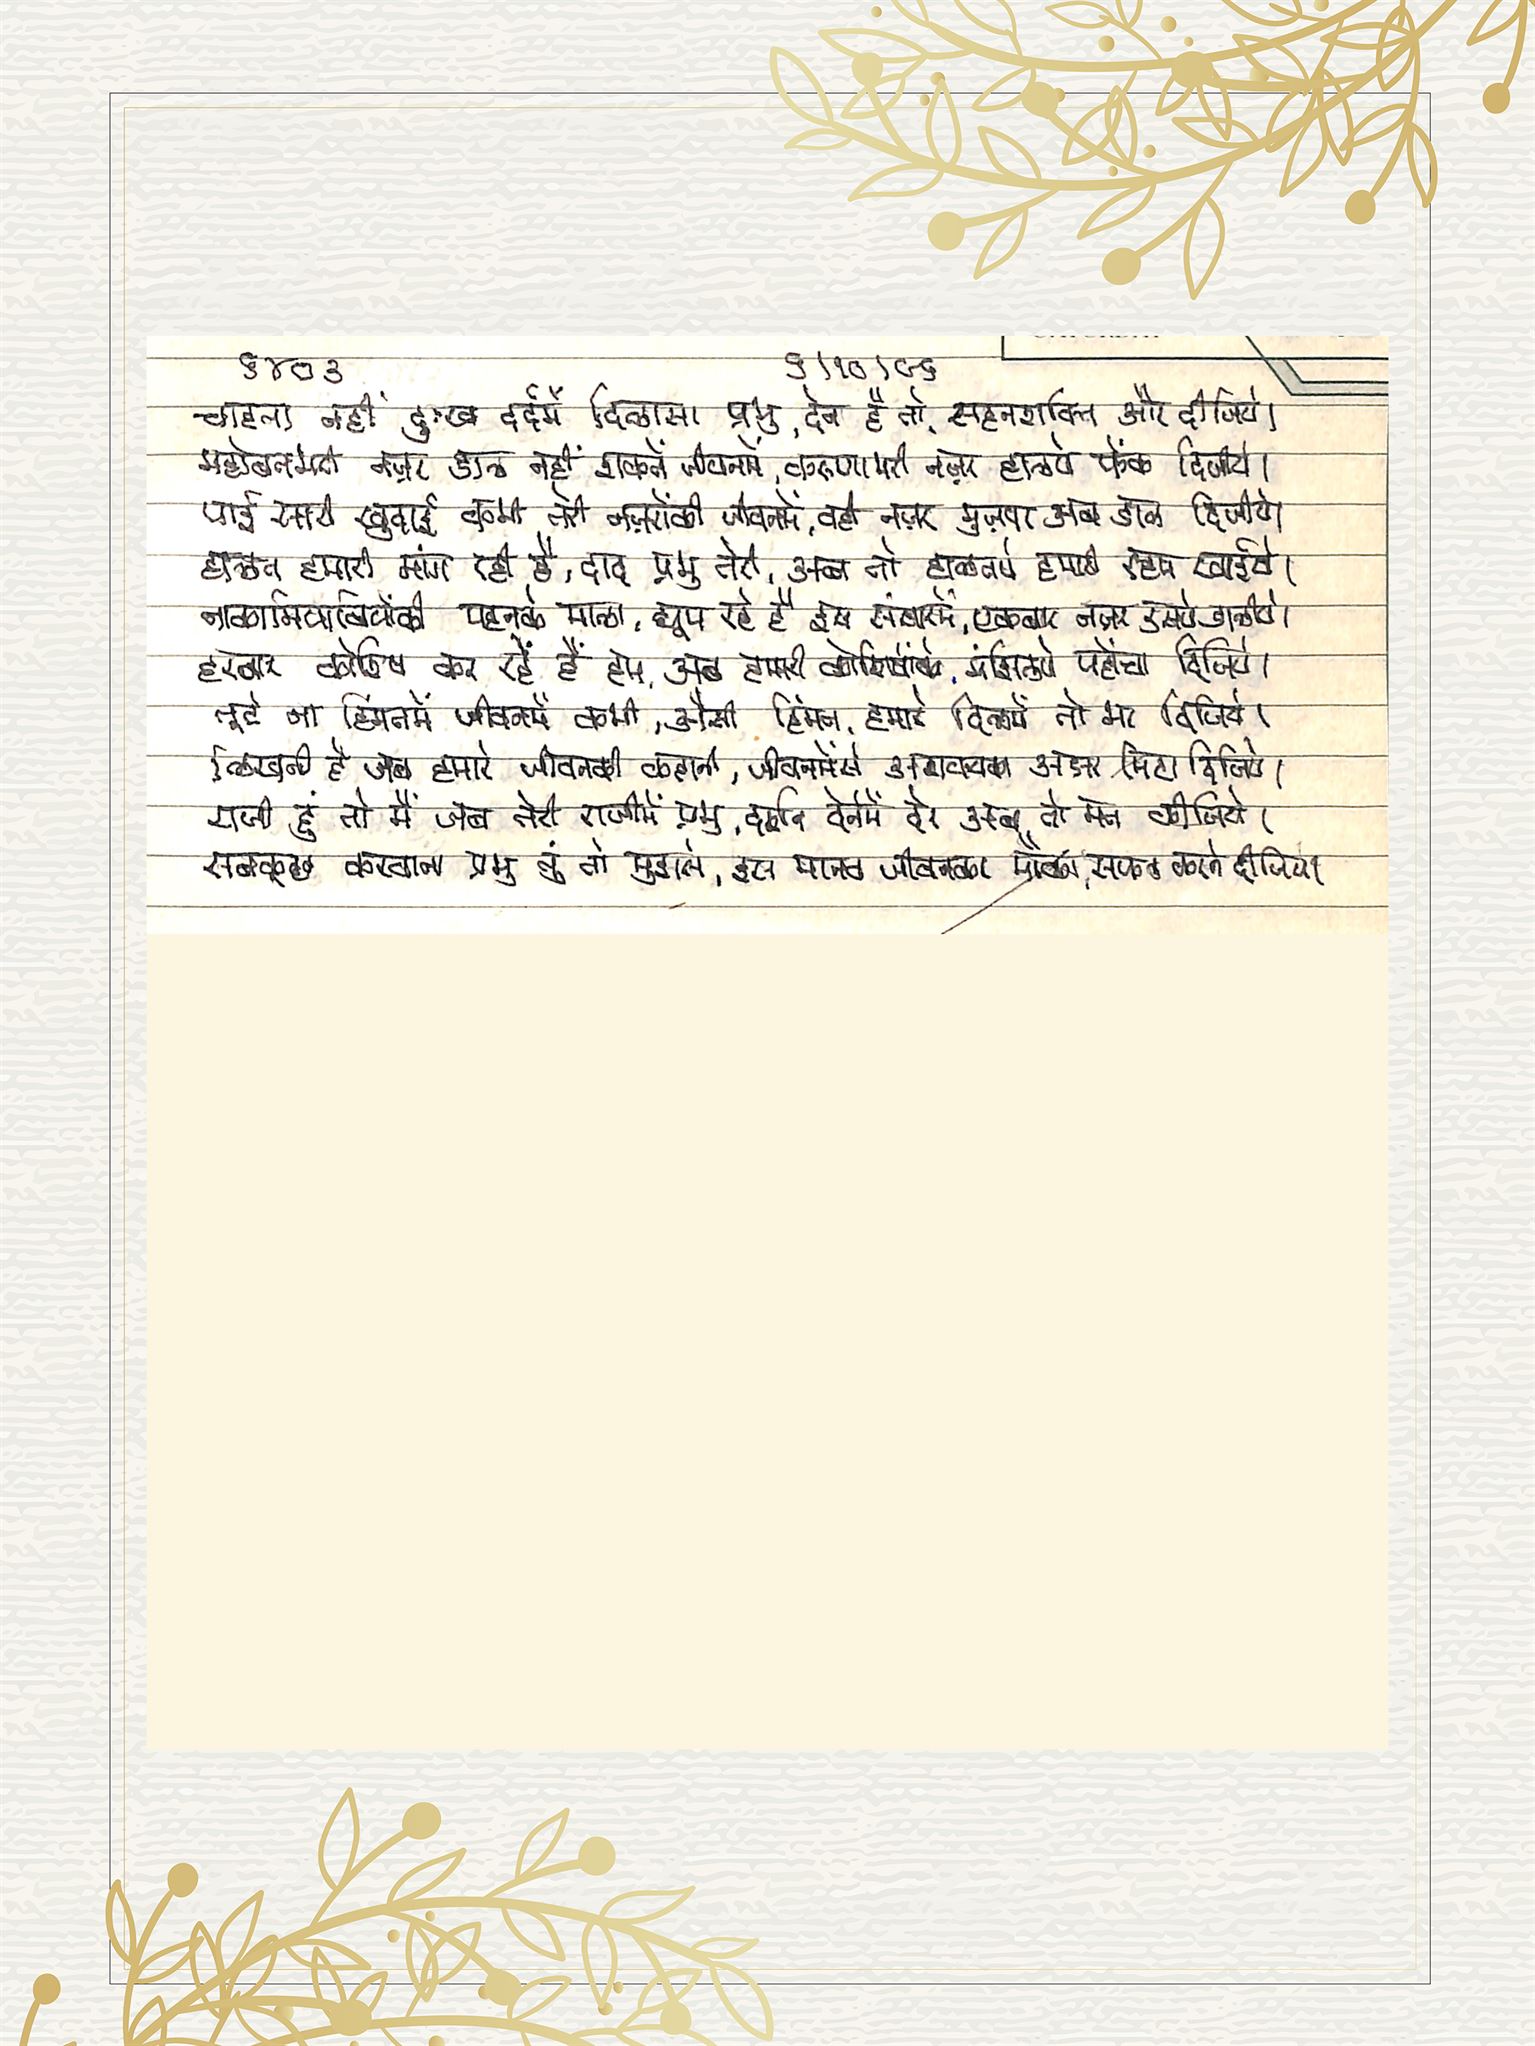 ६४०३ ६/१०/८६
चाहता नहीं दुःख दर्दमें दिलासा प्रभु, देना है तो, सहनशक्ति और दीजिये।
महोबतभरी नज़र डाल नहीं शकतें जीवनमें, करुणाभरी नज़र हालपे फेंक दिजीये।
पाई सारी खुदाई कभी तेरी नज़रोंकी जीवनमें, वही नज़र मुज़पर अब डाल दिजीये।
हालत हमारी मांग रही है, दाद प्रभु तेरी, अब तो हालतपे हमारी रहम खाईये।
नाकामियाबियोंकी पहनके माला, घूम रहे है इस संसारमें, एकबार नज़र उसपे डालीये।
हरबार कोशिष कर रहें हैं हम, अब हमारी कोशिषोंके, मंझिलपे पहोंचा दिजिये।
तूटे ना हिंमतमें जीवनमें कभी, अैसी हिंमत, हमारे दिलमें तो भर दिजिये।
लिखनी है जब हमारे जीवनकी कहानी, जीवनमेंसे अक्षर मिटा दिजिये।
राजी हुं तो मैं जब तेरी राजीमें प्रभु, दर्शन देनेमें देर अब, तो मत कीजिये।
सबकूछ करवाना प्रभु तुं तो मुझसे, इस मानव जीवनका मौका, सफल करने दीजिये।